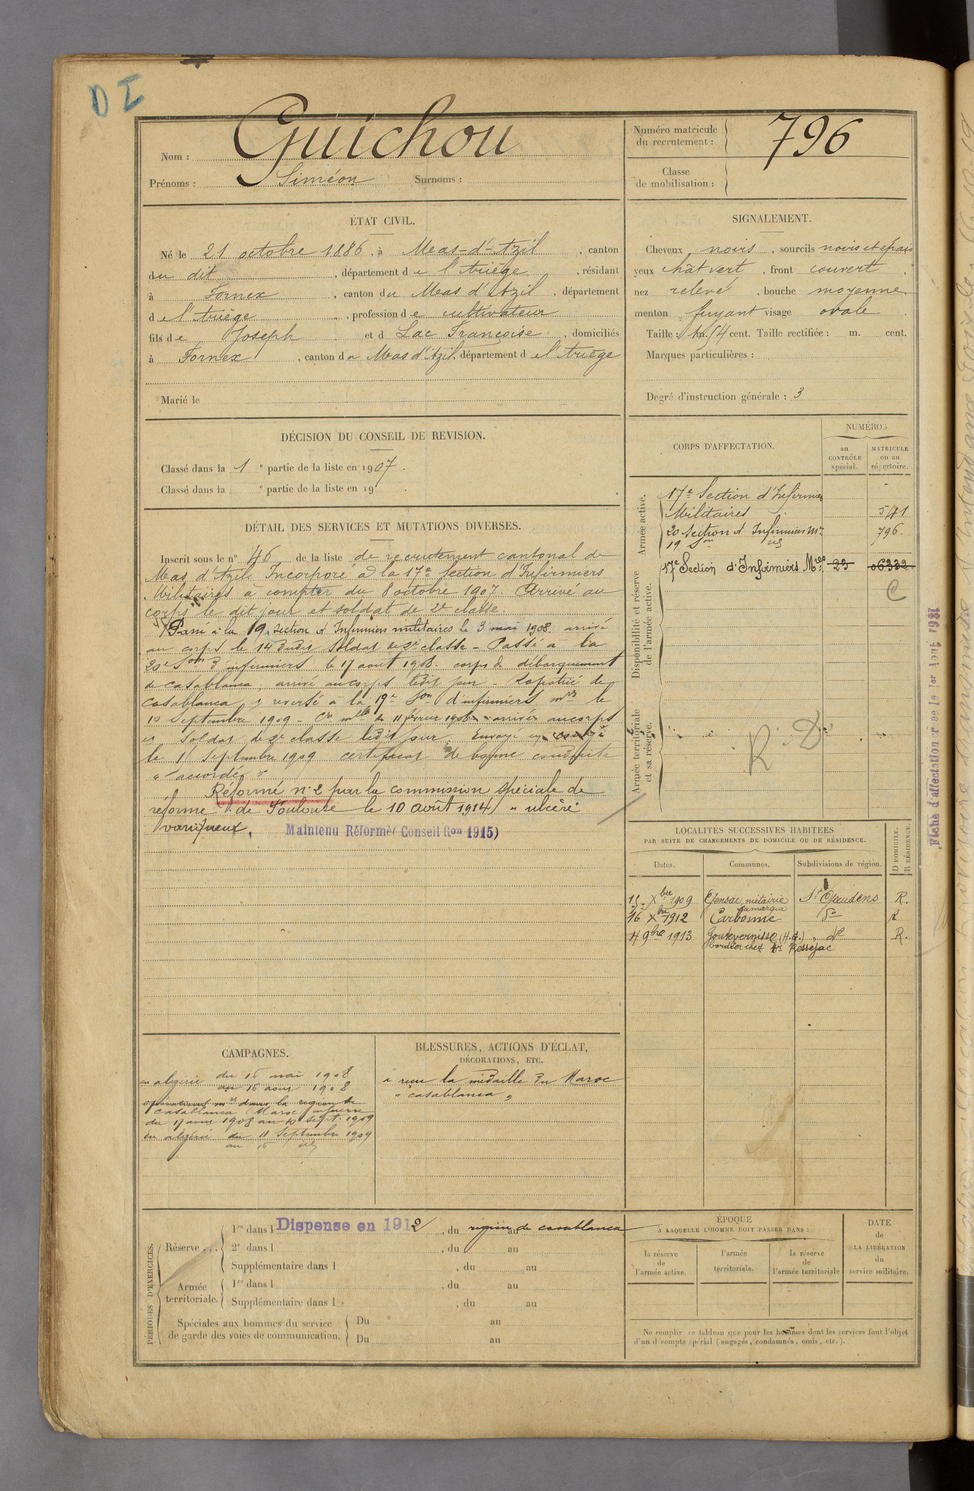 D I
Nom : Guichou
Prénoms : Siméon Surnoms :
Numéro matricule du recrutement : 796
Classe de mobilisation :
ÉTAT CIVIL.
Né le 21 octobre 1886, à Meas-d'Azil, canton
du dit, département de l'Ariège, résidant
à Fornex, canton du Meas d'Azil, département
de l'Ariège, profession de cultivateur
fils de Joseph et d Lac Françoise, domiciliés
à Fornex, canton du Mas d'Azil, département de l'Ariège
Marié le
SIGNALEMENT.
Cheveux noirs, sourcils noirs et épais
yeux chât vert, front couvert
nez relevé, bouche moyenne
menton fuyant visage ovale
Taille : 1m. 74 cent. Taille rectifiée : m. cent.
Marques particulières :
Degré d'instruction générale : 3
DÉCISION DU CONSEIL DE REVISION.
Classé dans la 1e partie de la liste en 1907.
Classé dans la e partie de la liste en 19
DÉTAIL DES SERVICES ET MUTATIONS DIVERSES.
Inscrit sous le n° 46 de la liste de recrutement cantonal de
Mas d'Azil. Incorporé à la 17e Section d'Infirmiers
Militaires à compter du 8 octobre 1907. Arrivé au
corps le dit jour et soldat de 2e classe.
Passé à la 19e Section d'Infirmiers militaires le 3 mai 1908. arrivé
au corps le 14 dudit soldat de 2e classe - Passé à la
20e Son d'infirmiers le 17 aout 1908. corps de débarquement
de casablanca, arrivé au corps ledit jour - Rapatrié de
casablanca, reversé à la 19e Son d'infirmiers mres le
10 Septembre 1909 - arrivé au corps
Soldat de 2e classe ledit jour. Envoyé en congé
le 11 Septembre 1909 certificat de bonne conduite
"accordé"
Réformé n° 2 par la commission spéciale de
réforme de Toulouse le 10 août 1914 "ulcère
variqueux,
Maintenu Réformé (Conseil Ron 1915)
CORPS D'AFFECTATION.
NUMÉROS
au CONTRÔLE spécial.
MATRICULE ou au répertoire.
Armée active.
17e Section d'Infirmiers
Militaires 541
20 Section d'Infirmiers Mres 796
19 Son
Disponibilité et réserve de l'armée active.
17e Section d'Infirmiers Mres 23 06332
C
Armée territoriale et sa réserve.
R D
Fiche d'affectation r ée le 1er Aout 1931
LOCALITÉS SUCCESSIVES HABITÉES
PAR SUITE DE CHANGEMENTS DE DOMICILE OU DE RÉSIDENCE.
Dates. Communes. Subdivisions de région.
D DOMICILE. R RÉSIDENCE.
15 Xbre 1909 St Gaudens R.
16 Xbre 1912 Carbonne do
14 9bre 1913 Goutevernisse (H.G.) do R.
CAMPAGNES.
en algérie du 15 mai 1908
au 16 aout 1908
opérations mres dans la région de
casablanca (Maroc) guerre
du 17 aout 1908 au 10 sept. 1909
en algérie du 11 Septembre 1909
BLESSURES, ACTIONS D'ÉCLAT,
DÉCORATIONS, ETC.
a reçu la médaille du Maroc
"casablanca"
PÉRIODES D'EXERCICES.
Réserve...
1re dans l Dispense en 1912, du région de casablanca
2e dans l, du au
Supplémentaire dans l, du au
Armée territoriale.
1re dans l, du au
Supplémentaire dans l, du au
Spéciales aux hommes du service de garde des voies de communication.
Du au
Du au
ÉPOQUE
À LAQUELLE L'HOMME DOIT PASSER DANS :
la réserve de l'armée active.
l'armée territoriale.
la réserve de l'armée territoriale
DATE de LA LIBÉRATION du service militaire.
Ne remplir ce tableau que pour les hommes dont les services font l'objet
d'un décompte spécial (engagés, condamnés, omis, etc.).